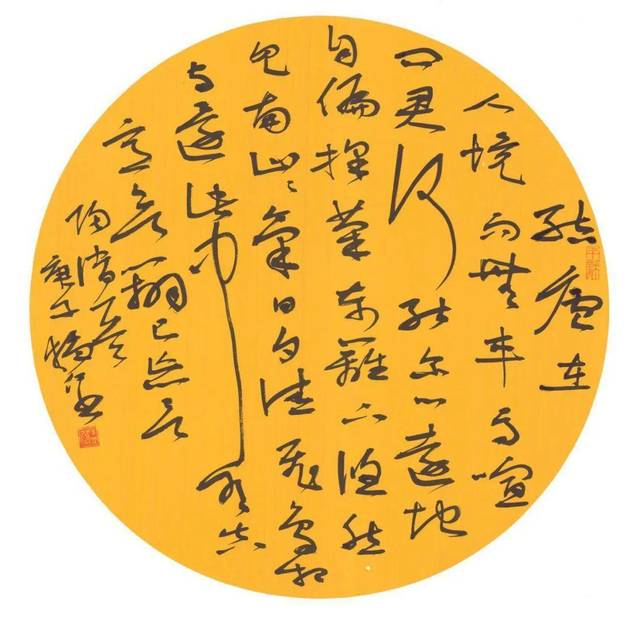 結廬在
人境而無車馬喧
问君何能尔心遠地
自偏採菊东籬下悠然
见南山〻氣日夕佳飛鸟相
与還此中有真
意欲辨已忘言
陶潜
庚子